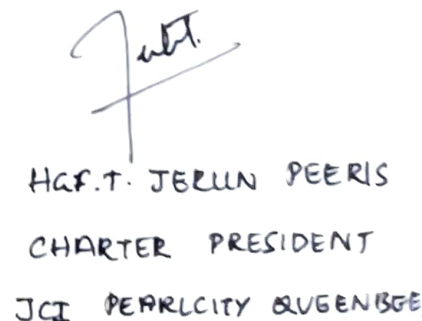 HGF.T. JERUN PEERIS
CHARTER PRESIDENT
JCI PEARLCITY QUEENBEE